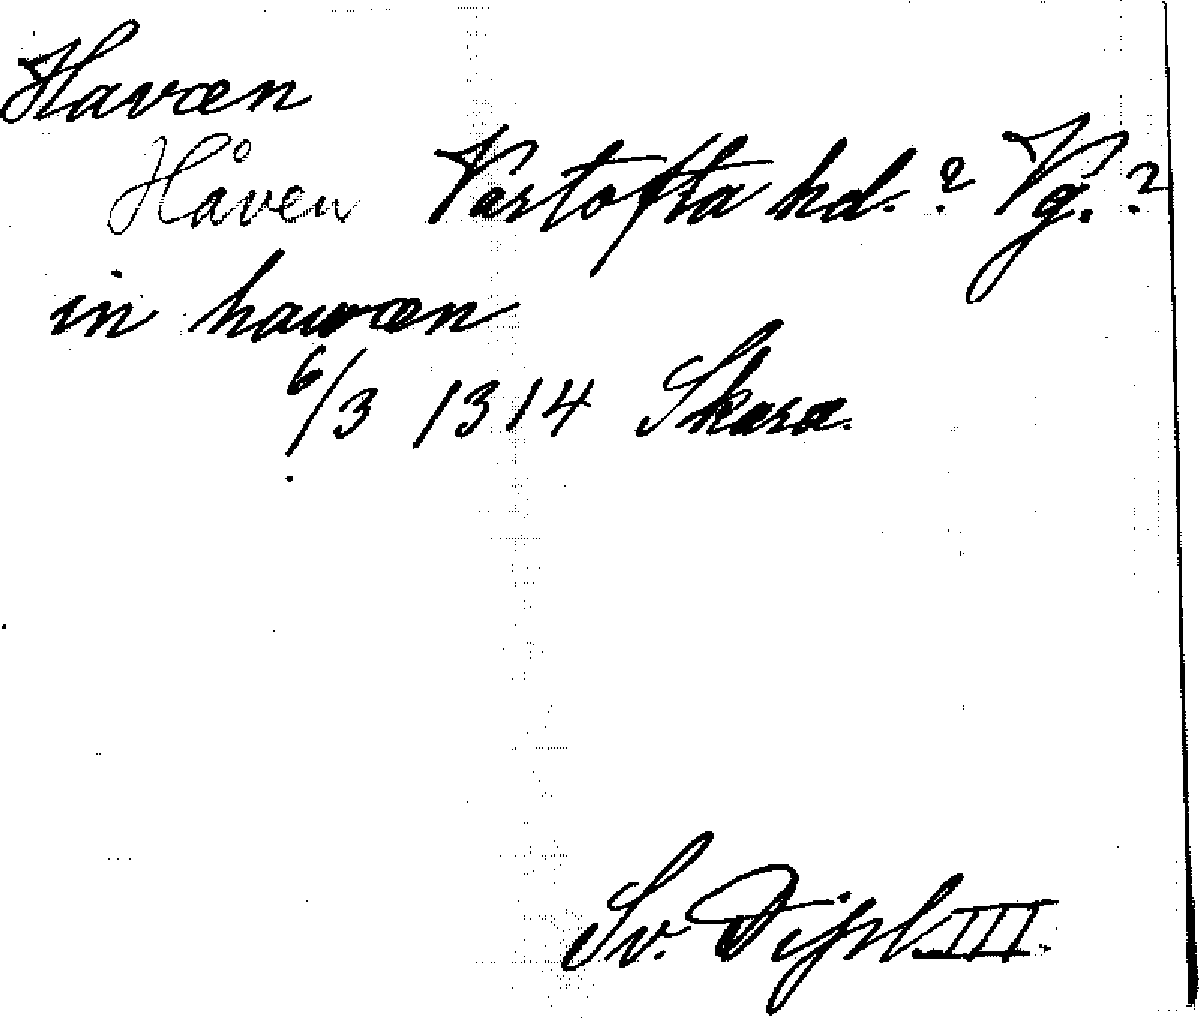 Havæn
Håven Vartofta hd.? Vg.?
in hauæn
6/3 1314 Skara.
Sv. Dipl III.